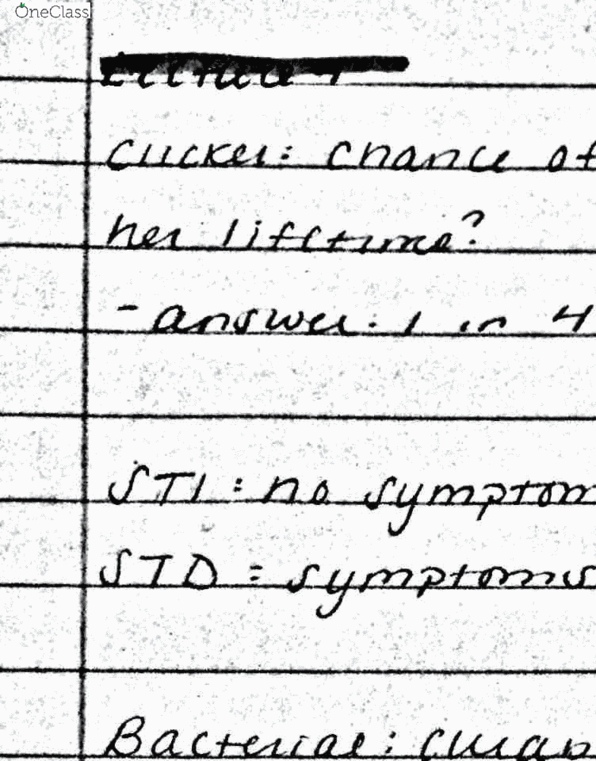 OneClass
Clicker: chance of
her lifetime?
- answer: 1 in 4
STI: no symptom
STD = symptoms
Bacterial: curab